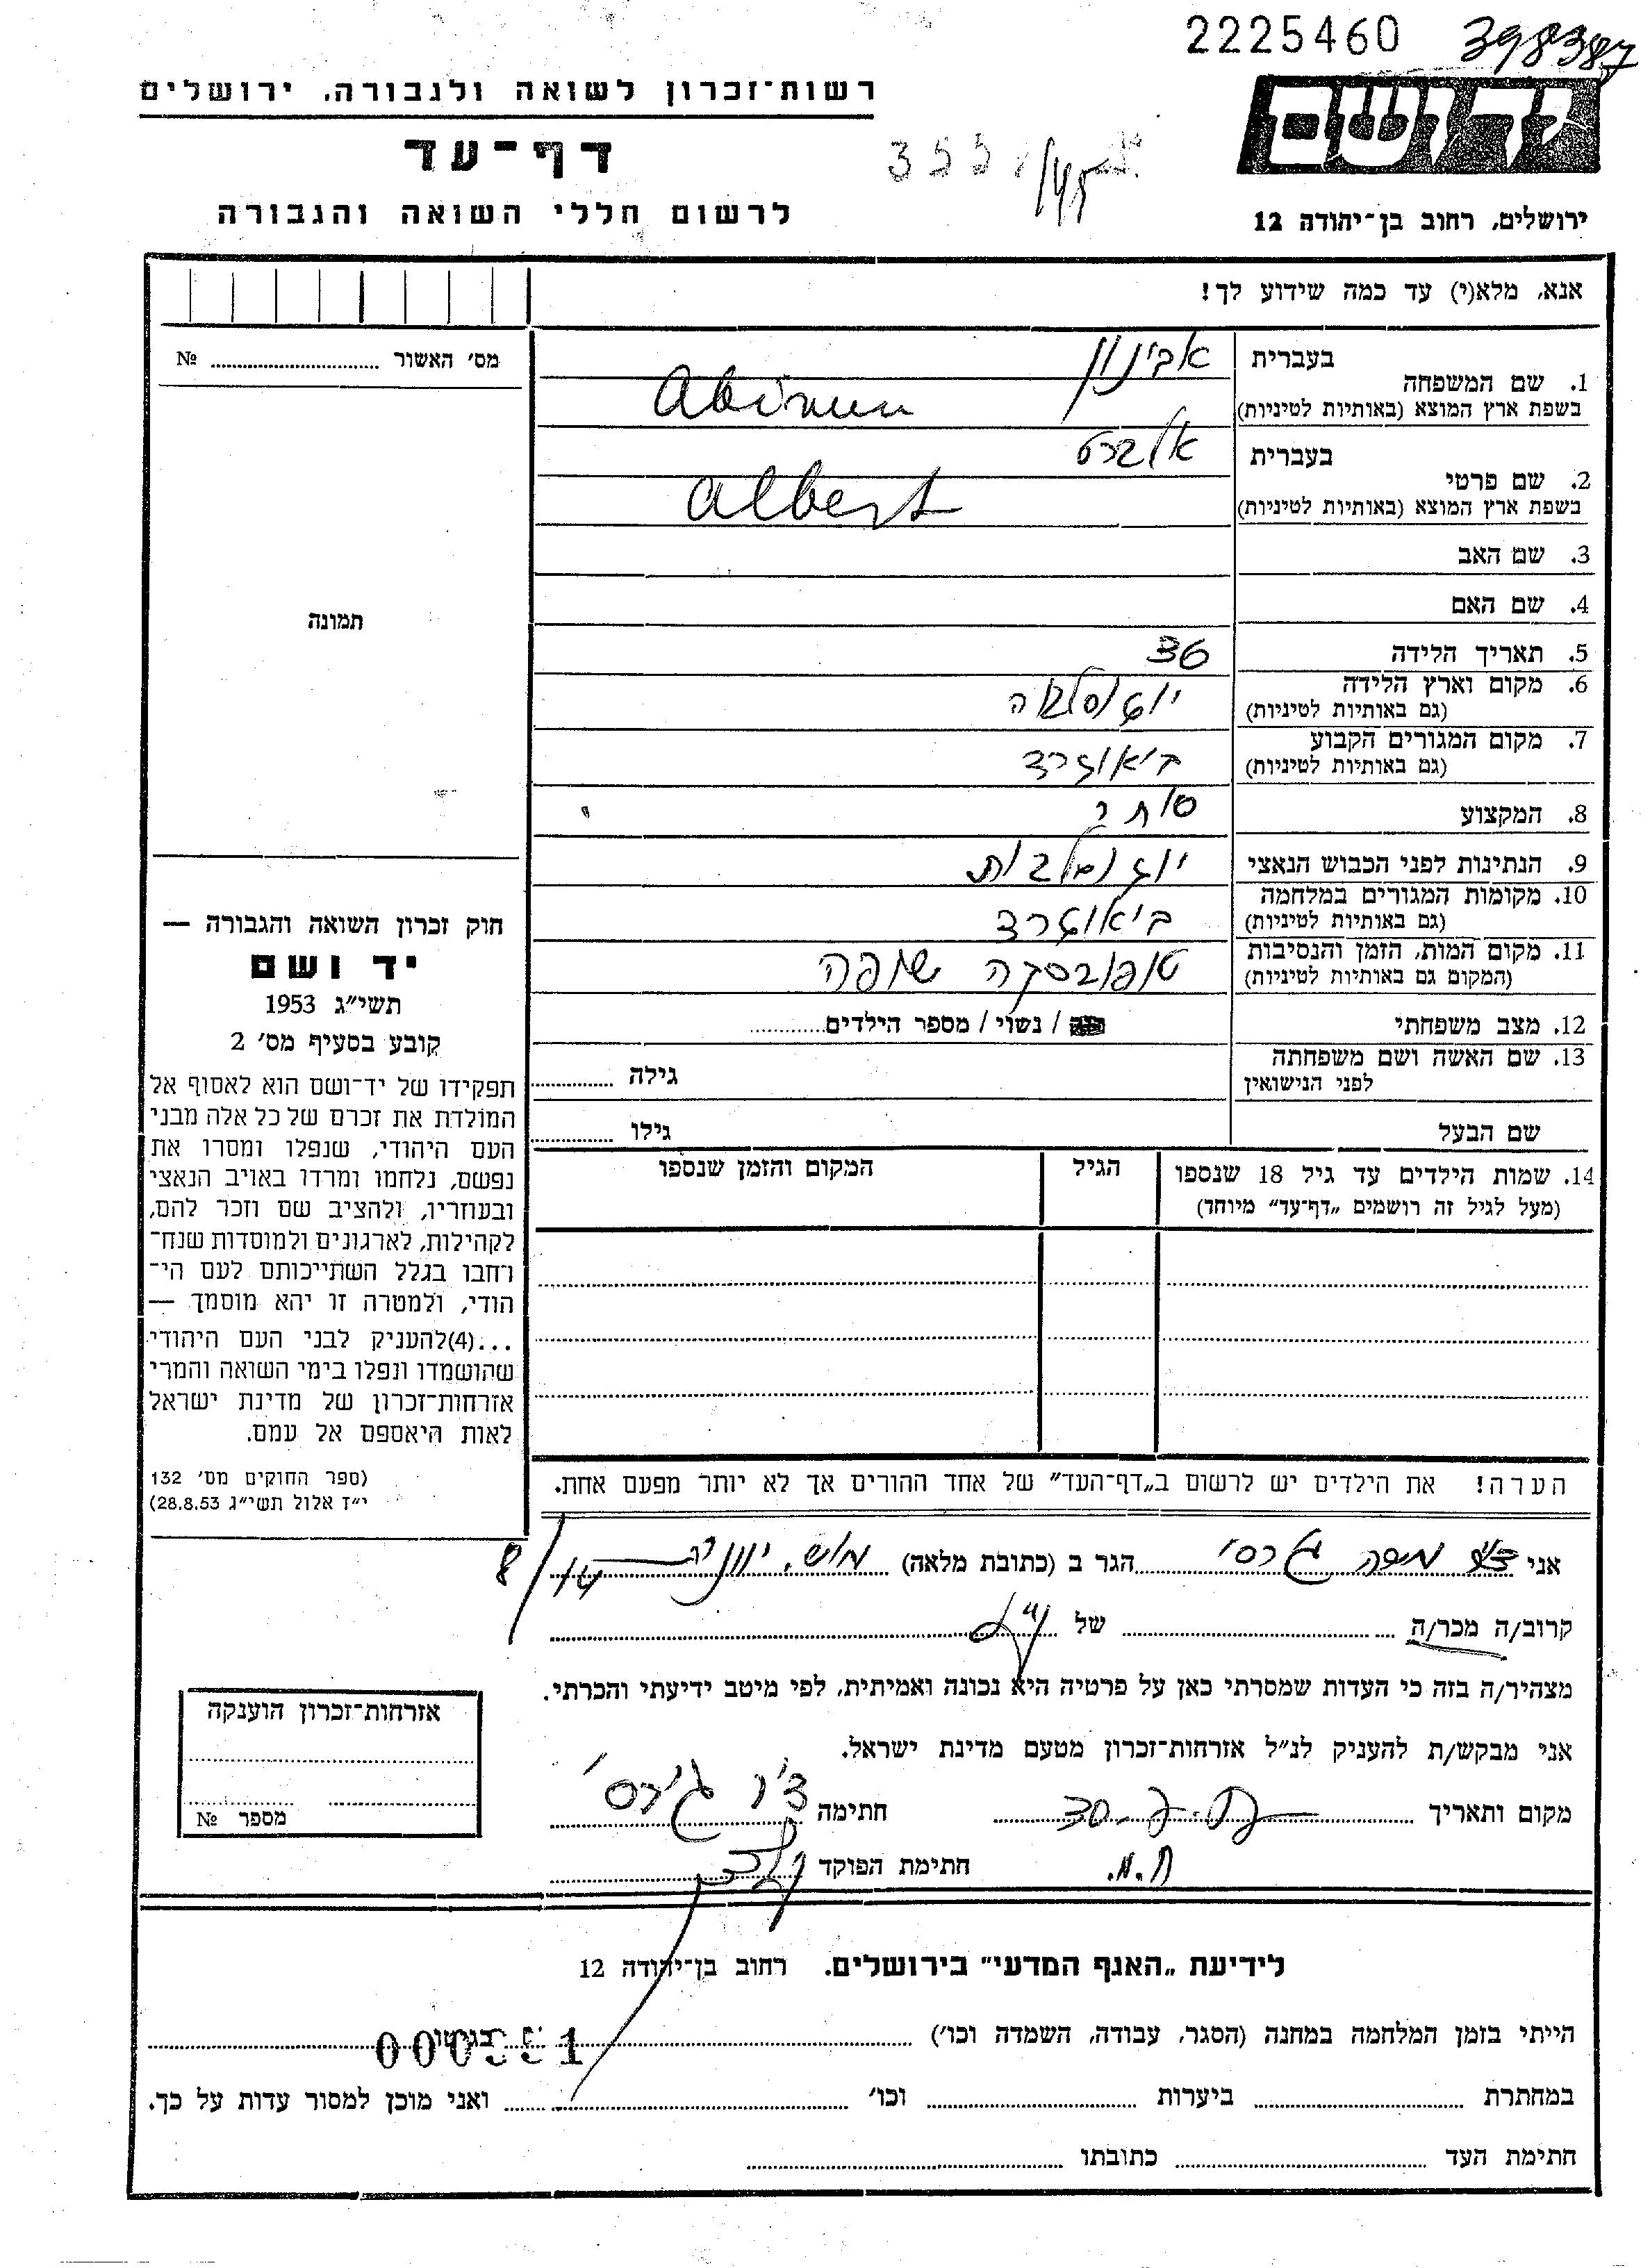 2225460 398387
רשות־זכרון לשואה ולגבורה. ירושלים
יד ושם
דף־עד
לרשום חללי השואה והגבורה
ירושלים, רחוב בן־יהודה 12
אנא, מלא(י) עד כמה שידוע לך!
מס׳ האשור № 
תמונה
בעברית אבינון
1. שם המשפחה
בשפת ארץ המוצא (באותיות לטיניות) Abinun
בעברית אלברט
2. שם פרטי
בשפת ארץ המוצא (באותיות לטיניות) Albert
3. שם האב
4. שם האם
5. תאריך הלידה 36
6. מקום וארץ הלידה יוגוסלביה
(גם באותיות לטיניות)
7. מקום המגורים הקבוע
(גם באותיות לטיניות) ביאוגרד
8. המקצוע סוחר
9. הנתינות לפני הכבוש הנאצי יוגוסלבית
10. מקומות המגורים במלחמה
(גם באותיות לטיניות) ביאוגרד
11. מקום המות, הזמן והנסיבות טופובסקה שופה
(המקום גם באותיות לטיניות)
12. מצב משפחתי / נשוי / מספר הילדים
13. שם האשה ושם משפחתה
לפני הנישואין גילה
שם הבעל גילו
14. שמות הילדים עד גיל 18 שנספו הגיל המקום והזמן שנספו
(מעל לגיל זה רושמים „דף־עד״ מיוחד)
הערה! את הילדים יש לרשום ב„דף־העד״ של אחד ההורים אך לא יותר מפעם אחת.
חוק זכרון השואה והגבורה —
יד ושם
תשי״ג 1953
קובע בסעיף מס׳ 2
תפקידו של יד־ושם הוא לאסוף אל
המולדת את זכרם של כל אלה מבני
העם היהודי, שנפלו ומסרו את
נפשם, נלחמו ומרדו באויב הנאצי
ובעוזריו, ולהציב שם וזכר להם,
לקהילות, לארגונים ולמוסדות שנח־
רחבו בגלל השתייכותם לעם הי־
הודי, ולמטרה זו יהא מוסמך —
...(4)להעניק לבני העם היהודי
שהושמדו ונפלו בימי השואה והמרי
אזרחות־זכרון של מדינת ישראל
לאות היאספם אל עמם.
(ספר החוקים מס׳ 132
י״ז אלול תשי״ג 28.8.53)
אני הגר ב (כתובת מלאה) 14/8
קרוב/ה מכר/ה של
מצהיר/ה בזה כי העדות שמסרתי כאן על פרטיה היא נכונה ואמיתית, לפי מיטב ידיעתי והכרתי.
אני מבקש/ת להעניק לנ״ל אזרחות־זכרון מטעם מדינת ישראל.
מקום ותאריך חתימה
ח.מ. חתימת הפוקד
אזרחות־זכרון הוענקה
מספר №
לידיעת „האגף המדעי״ בירושלים. רחוב בן־יהודה 12
הייתי בזמן המלחמה במחנה (הסגר, עבודה, השמדה וכו׳) בגיטו
במחתרת ביערות וכו׳ ואני מוכן למסור עדות על כך.
חתימת העד כתובתו